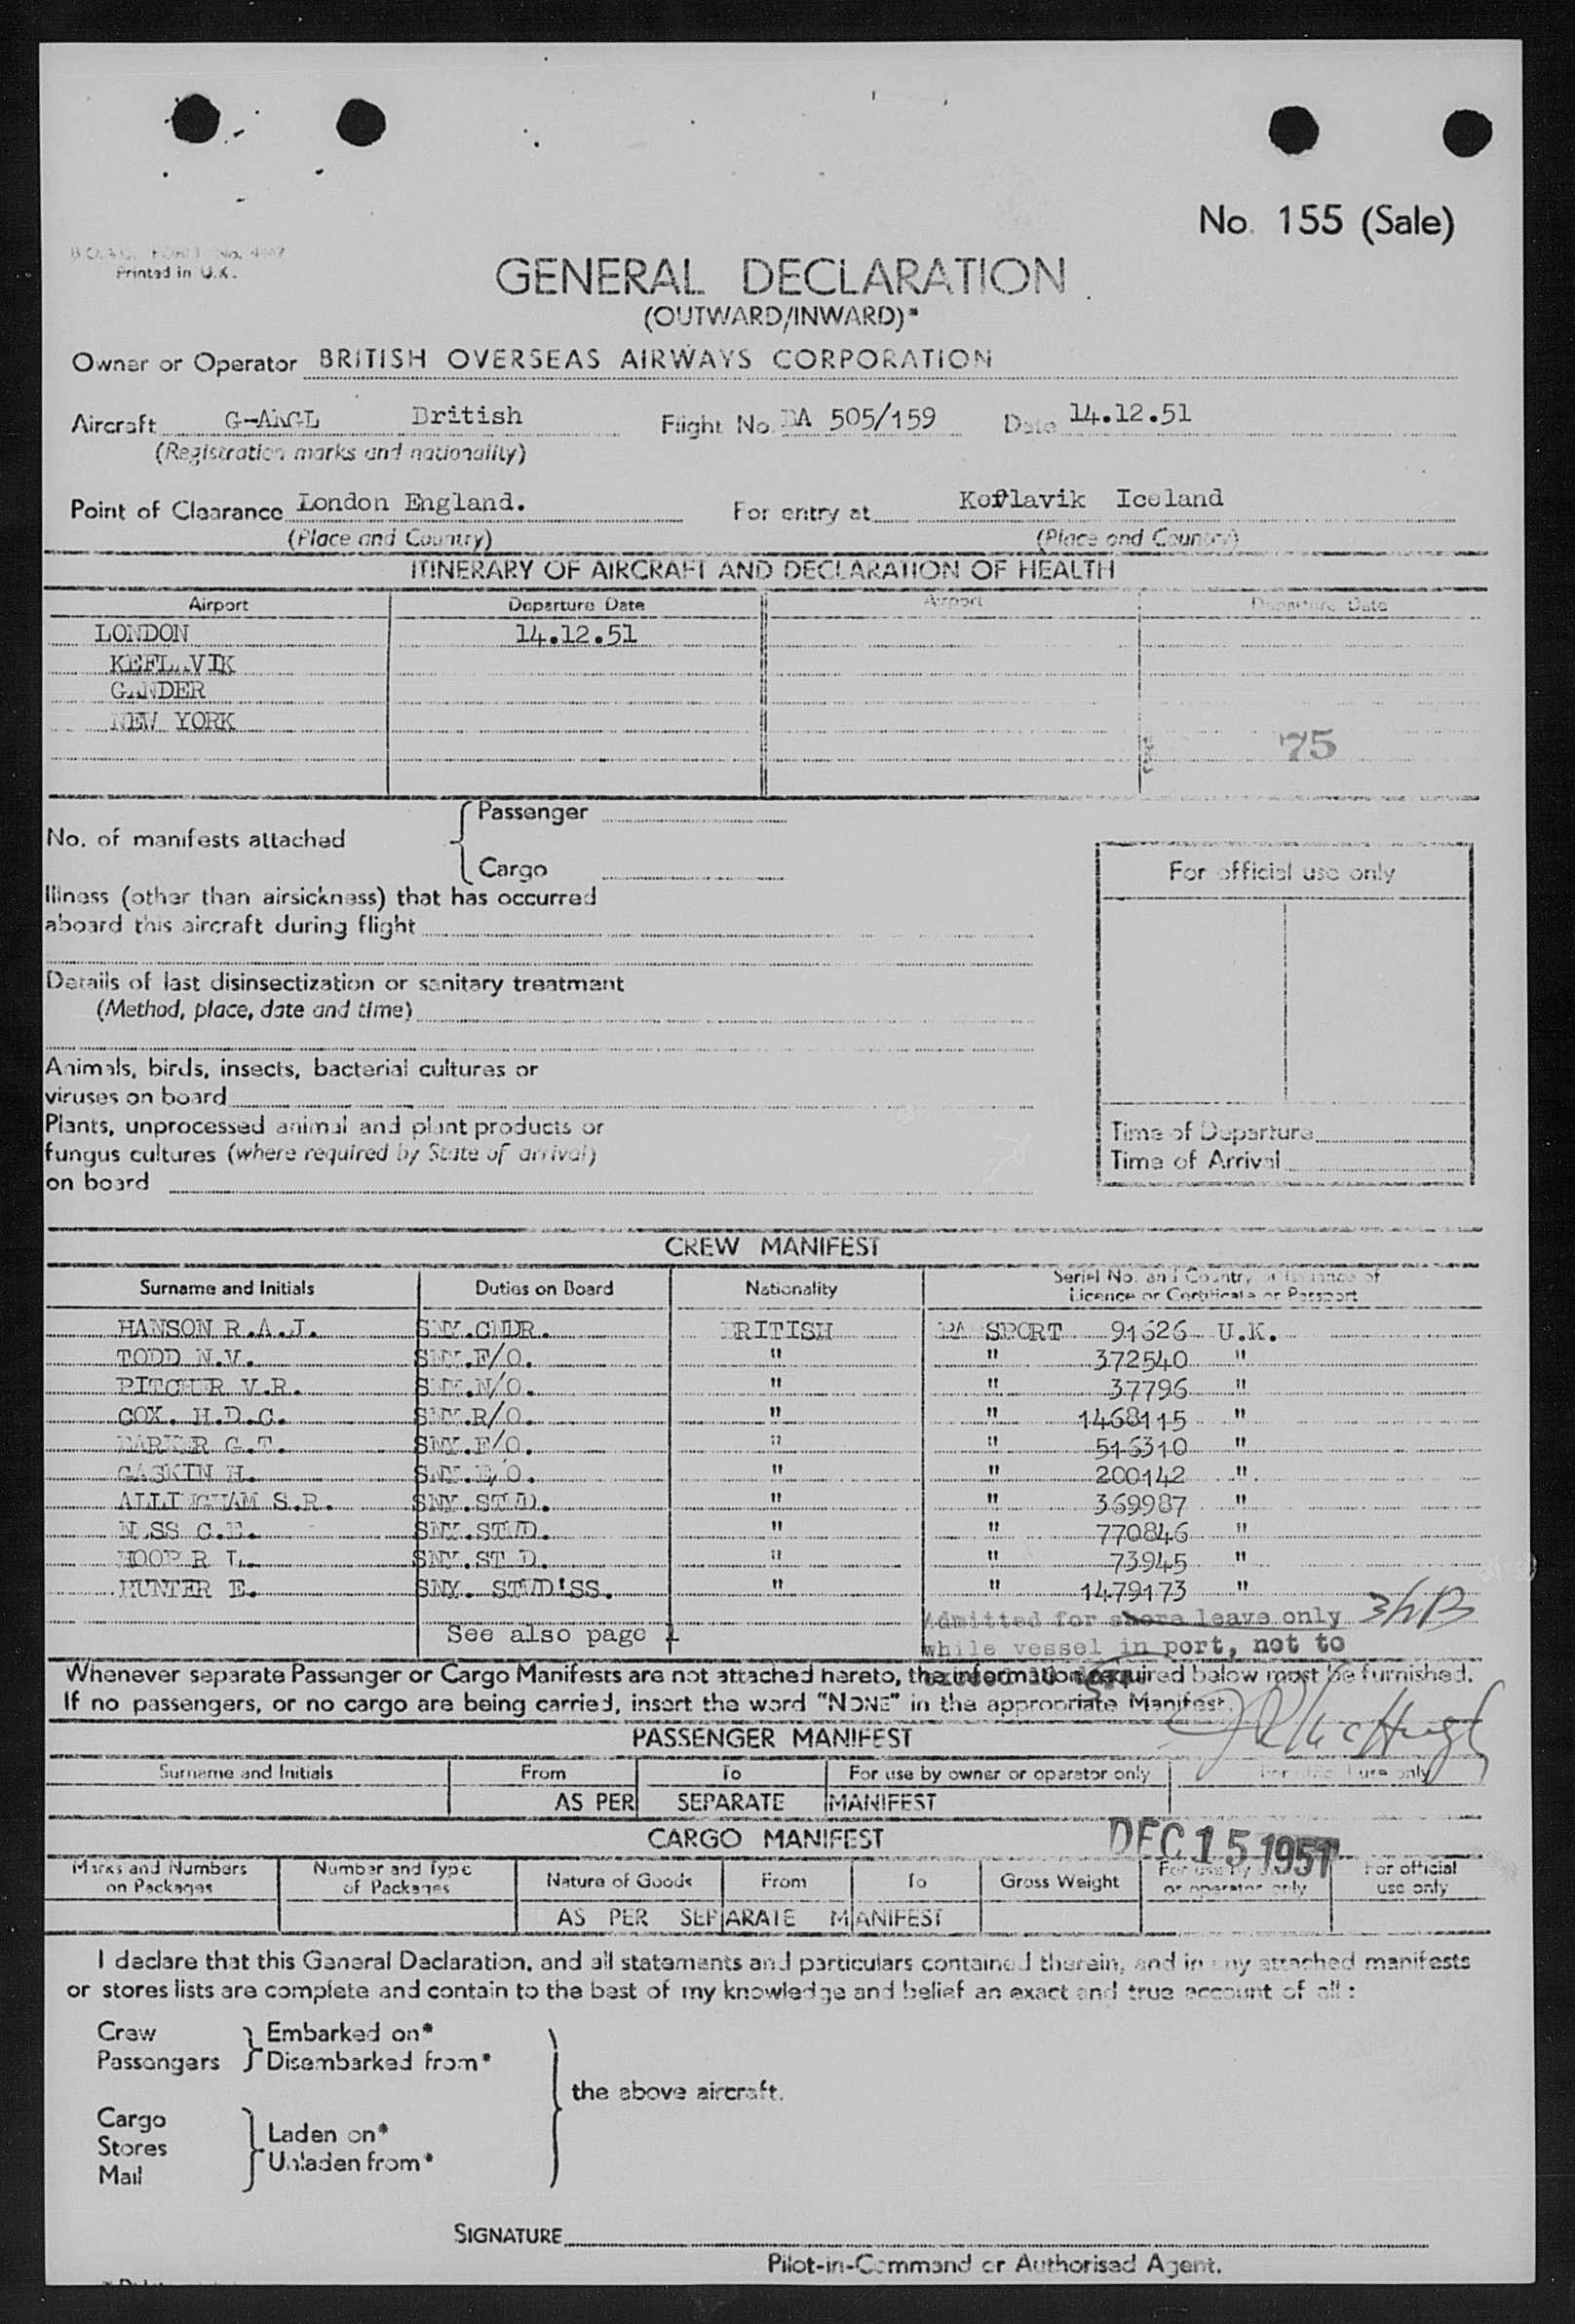 No. 155 (Sale)
Printed in U.K.
GENERAL DECLARATION
(OUTWARD/INWARD)*
Owner or Operator BRITISH OVERSEAS AIRWAYS CORPORATION
Aircraft British Flight No. BA 505/159 Date 14.12.51
(Registration marks and nationality)
Point of Clearance London England. For entry at Keflavik Iceland
(Place and Country) (Place and Country)
ITINERARY OF AIRCRAFT AND DECLARATION OF HEALTH
Airport Departure Date Airport Departure Date
LONDON 14.12.51
KEFLAVIK
GANDER
NEW YORK
75
No. of manifests attached
Passenger
Cargo
For official use only
Illness (other than airsickness) that has occurred
aboard this aircraft during flight
Details of last disinsectization or sanitary treatment
(Method, place, date and time)
Animals, birds, insects, bacterial cultures or
viruses on board
Plants, unprocessed animal and plant products or
fungus cultures (where required by State of arrival)
on board
Time of Departure
Time of Arrival
CREW MANIFEST
Surname and Initials Duties on Board Nationality Serial No. and Country of Issuance of
Licence or Certificate or Passport
HANSON R.A.J. SNY.CMDR. BRITISH PASSPORT 91626 U.K.
TODD N.V. SNY.F/O. " " 372540 "
PITCHER V.R. SNY.N/O. " " 37796 "
COX. H.D.C. SNY.R/O. " " 1468115 "
G.T. SNY.E/O. " " 516310 "
GASKIN H. SNY.E/O. " " 200142 "
ALLINGHAM S.R. SNY.STWD. " " 369987 "
C.E. SNY.STWD. " " 770846 "
HOOPER L. SNY.STWD. " " 73945 "
HUNTER E. SNY. STWD'SS. " " 1479173 "
See also page 1
Admitted for shore leave only
while vessel in port, not to
Whenever separate Passenger or Cargo Manifests are not attached hereto, the information required below must be furnished.
If no passengers, or no cargo are being carried, insert the word "NONE" in the appropriate Manifest.
PASSENGER MANIFEST
Surname and Initials From To For use by owner or operator only For official use only
AS PER SEPARATE MANIFEST
CARGO MANIFEST
DEC 15 1951
Marks and Numbers on Packages Number and Type of Packages Nature of Goods From To Gross Weight For use by or operator only For official use only
AS PER SEPARATE MANIFEST
I declare that this General Declaration, and all statements and particulars contained therein, and in any attached manifests
or stores lists are complete and contain to the best of my knowledge and belief an exact and true account of all :
Crew Embarked on*
Passengers Disembarked from*
the above aircraft.
Cargo
Stores Laden on*
Mail Unladen from*
SIGNATURE
Pilot-in-Command or Authorised Agent.